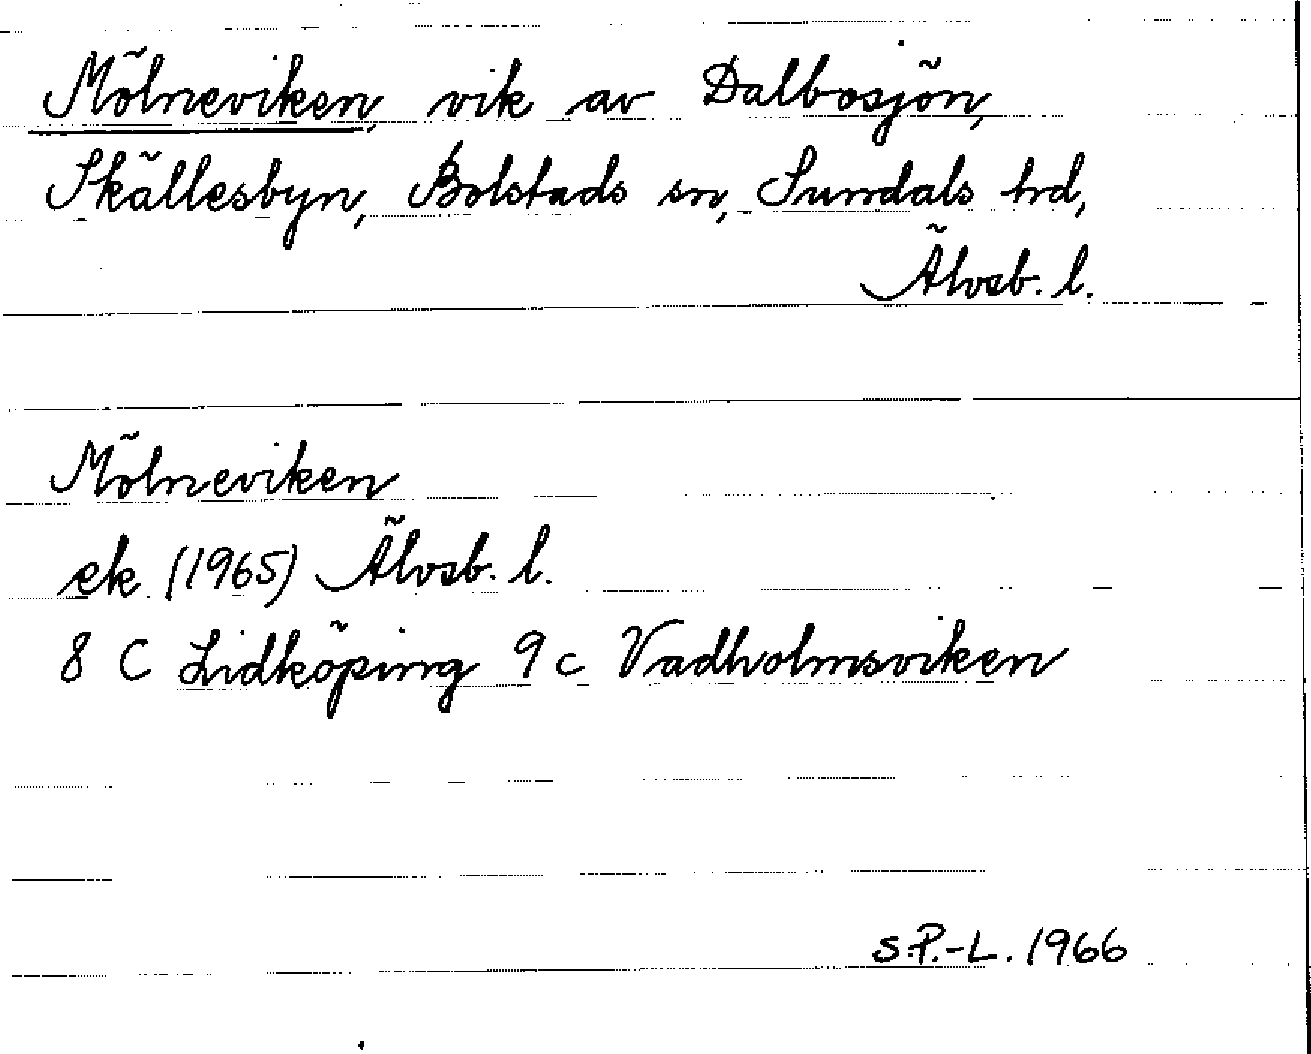 Mölneviken, vik av Dalbosjön,
Skällesbyn, Bolstads sn, Sundals hd,
Älvsb. l.
Mölneviken
ek (1965) Älvsb. l.
8 C Lidköping 9c Vadholmsviken
S.P.-L. 1966